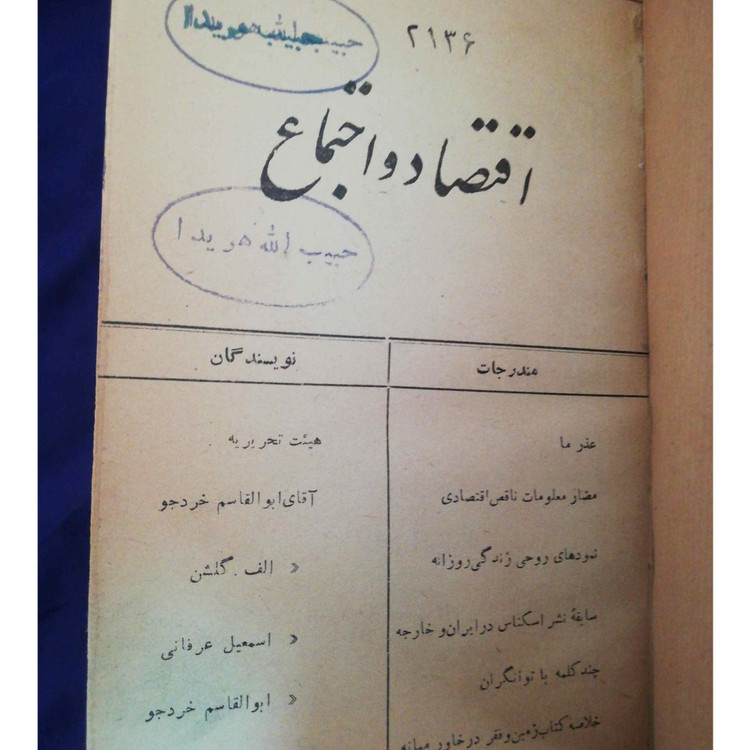 حبیب الله هویدا
۲۱۳۶
اقتصاد و اجتماع
حبیب الله هویدا
مندرجات نویسندگان
عذر ما هیئت تحریریه
مضار معلومات ناقص اقتصادی آقای ابوالقاسم خردجو
نمودهای روحی زندگی روزانه » الف . گلشن
سابقهٔ نشر اسکناس در ایران و خارجه » اسمعیل عرفانی
چند کلمه با توانگران » ابوالقاسم خردجو
خلاصه کتاب زمین و فقر در خاور میانه